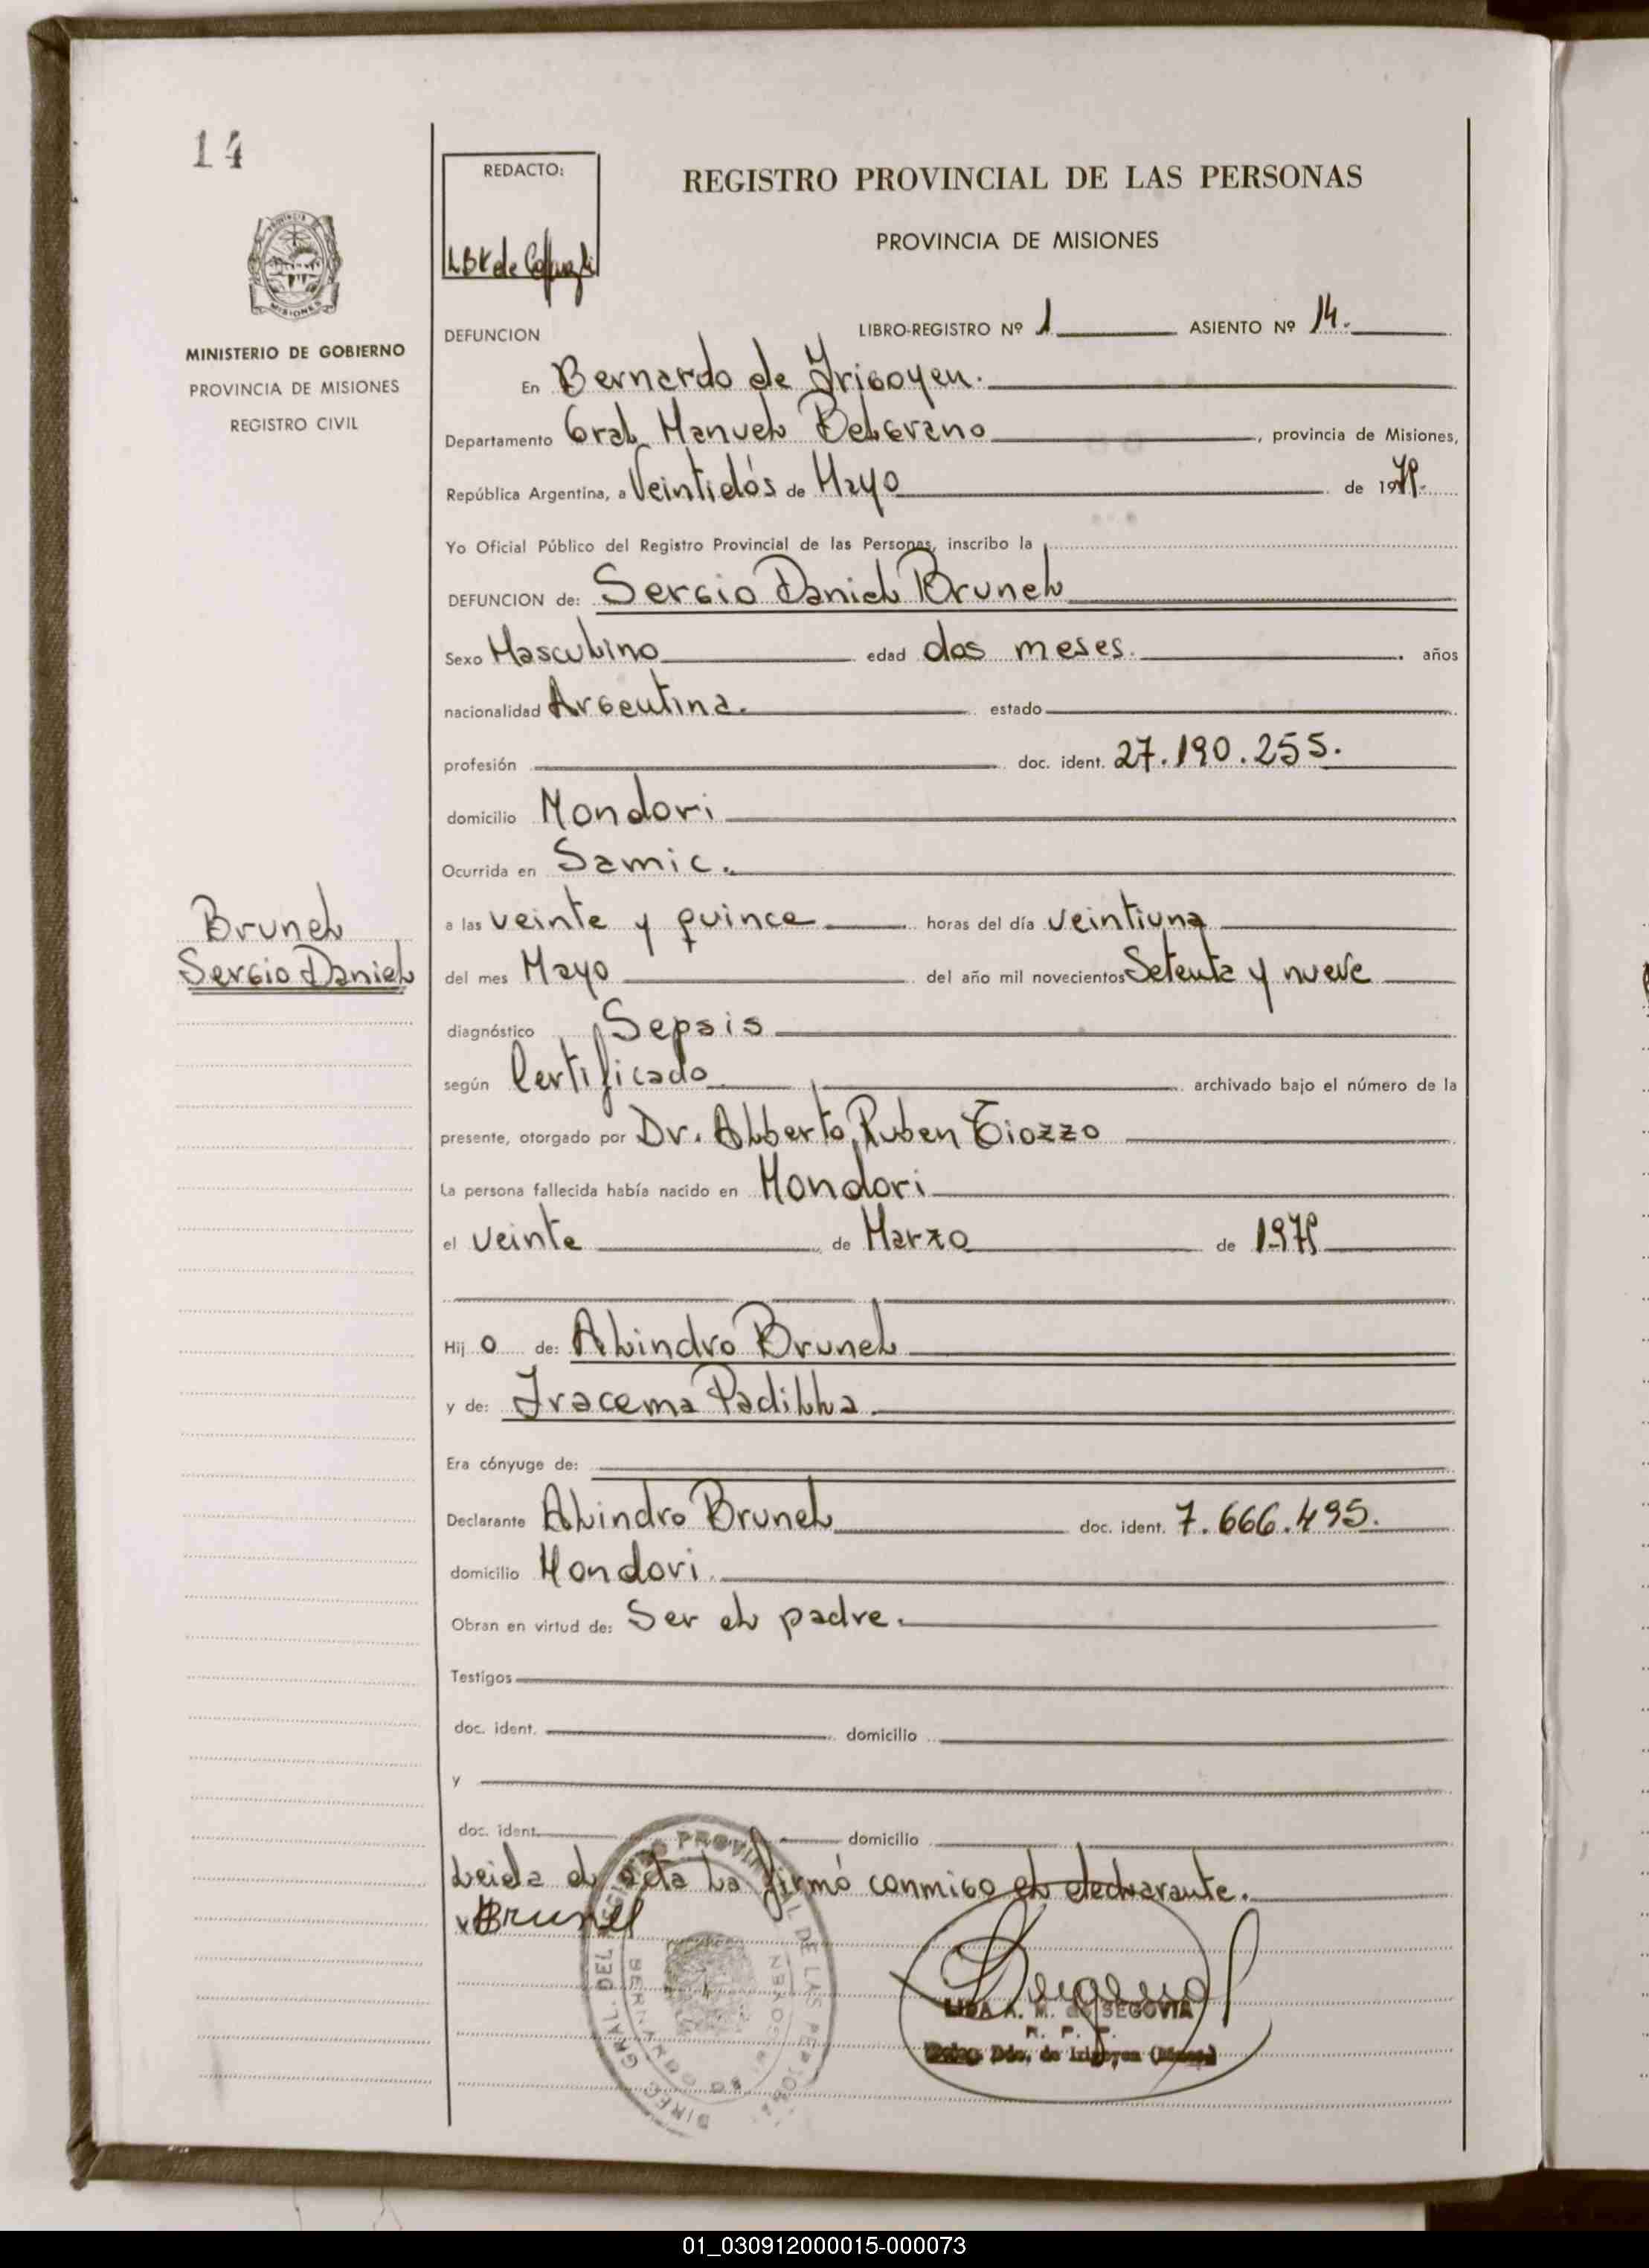 14
REDACTO:
REGISTRO PROVINCIAL DE LAS PERSONAS
PROVINCIA DE MISIONES
MISIONES
MINISTERIO DE GOBIERNO
PROVINCIA DE MISIONES
REGISTRO CIVIL
DEFUNCION
LIBRO-REGISTRO Nº 1 ASIENTO Nº 14.
En Bernardo de Irigoyen.
Departamento Gral. Manuel Belgrano, provincia de Misiones,
República Argentina, a Veintidós de Mayo de 1979.
Yo Oficial Público del Registro Provincial de las Personas, inscribo la
DEFUNCION de: Sergio Daniel Brunel
Sexo Masculino edad dos meses. años
nacionalidad Argentina. estado
profesión doc. ident. 27.190.255.
domicilio Mondori
Ocurrida en Samic.
a las veinte y quince horas del día veintiuna
Brunel
Sergio Daniel
del mes Mayo del año mil novecientos Setenta y nueve
diagnóstico Sepsis
según Certificado archivado bajo el número de la
presente, otorgado por Dr. Alberto Ruben Tiozzo
La persona fallecida había nacido en Mondori
el veinte de Marzo de 1979
Hijo de: Alindro Brunel
y de: Iracema Padilha
Era cónyuge de:
Declarante Alindro Brunel doc. ident. 7.666.495.
domicilio Mondori.
Obran en virtud de: Ser el padre.
Testigos
doc. ident. domicilio
y
doc. ident. domicilio
Leida el acta la firmó conmigo el declarante.
x Brunel
DIREC. GRAL. DEL REGISTRO PROVINCIAL DE LAS PERSONAS
BERNARDO DE IRIGOYEN
LIDA A. M. de SEGOVIA
R. P. P.
Bdo. de Irigoyen
01_030912000015-000073